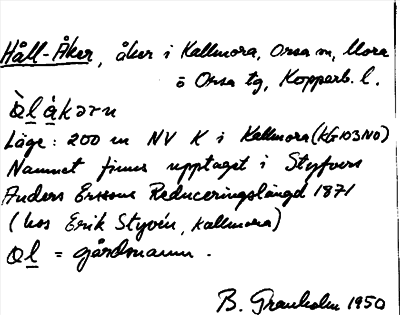 Håll-Åker, åker i Kallmora, Orsa sn, Mora
o Orsa tg, Kopparb. l.
Q̀l̲ à̲kərn
Läge: 200 m NV K i Kallmora (KG103NO)
Namnet finns upptaget i Styfvers
Anders Erssons Reduceringslängd 1871
(hos Erik Styvén, Kallmora)
Ql̲ = gårdsnamn.
B. Granholm 1950